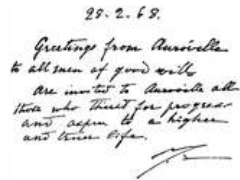 28.2.68.
Greetings from Auroville
to all men of good will.
Are invited to Auroville all
those who thirst for progress
and aspire to a higher
and truer life.